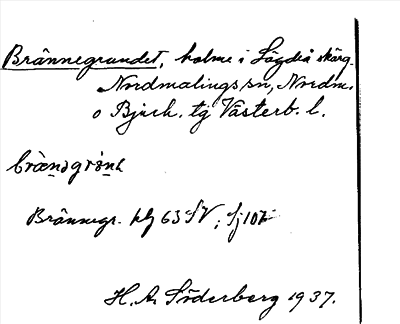 Brännegrundet, holme i Lögdeå skärg.
Nordmalings sn, Nordm.
o Bjurh. tg Västerb. l.
Brännegr. kbl 63 SV; Sj 107
H. A. Söderberg 1937.